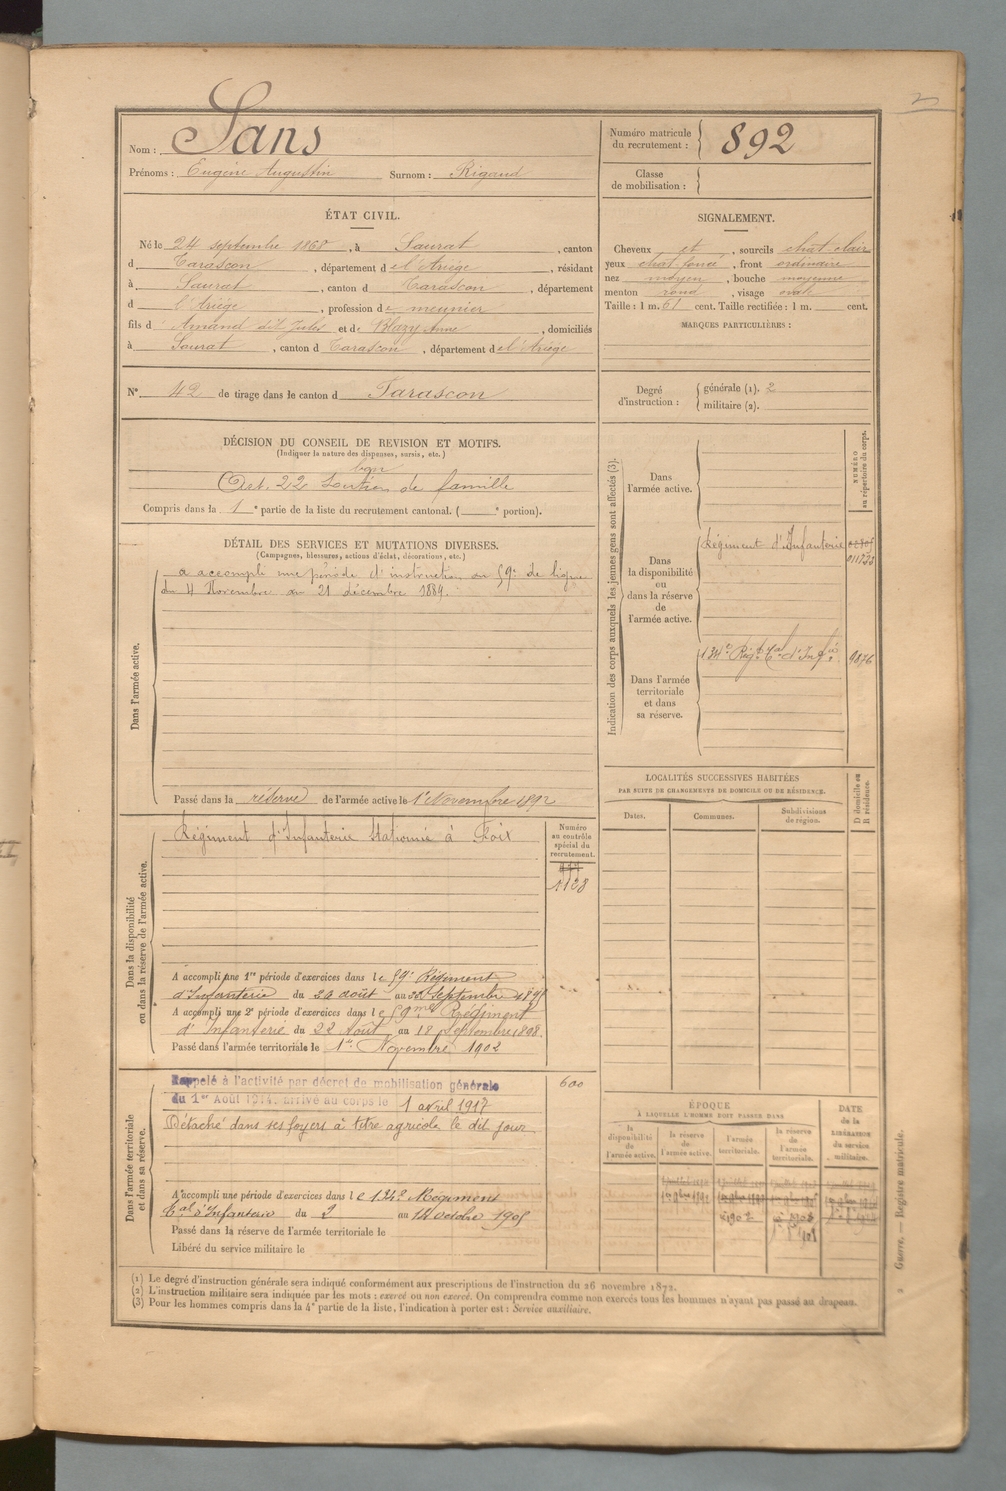 2
Nom : Sans
Prénoms : Eugène Augustin Surnom : Rigaud
Numéro matricule
du recrutement : 892
Classe
de mobilisation :
ÉTAT CIVIL.
Né le 24 septembre 1868, à Saurat, canton
d Tarascon, département de l'Ariège, résidant
à Saurat, canton d Tarascon, département
d l'Ariège, profession de meunier
fils d Amand dit Jules et de Blazy Anne, domiciliés
à Saurat, canton d Tarascon, département de l'Ariège
N° 42 de tirage dans le canton d Tarascon
SIGNALEMENT.
Cheveux et, sourcils chat clair
yeux chat foncé, front ordinaire
nez moyen, bouche moyenne
menton rond, visage ovale
Taille : 1 m. 61 cent. Taille rectifiée : 1 m. cent.
MARQUES PARTICULIÈRES :
Degré
d'instruction :
générale (1). 2
militaire (2).
DÉCISION DU CONSEIL DE REVISION ET MOTIFS.
(Indiquer la nature des dispenses, sursis, etc.)
bon
Art. 22 Soutien de famille
Compris dans la 1e partie de la liste du recrutement cantonal. ( e portion).
DÉTAIL DES SERVICES ET MUTATIONS DIVERSES.
(Campagnes, blessures, actions d'éclat, décorations, etc.)
Dans l'armée active.
a accompli une période d'instruction au 59e de ligne
du 4 Novembre au 21 décembre 1889.
Passé dans la réserve de l'armée active le 1er Novembre 1892
Indication des corps auxquels les jeunes gens sont affectés (3).
NUMÉRO
au répertoire du corps.
Dans
l'armée active.
Dans
la disponibilité
ou
dans la réserve
de
l'armée active.
Régiment d'Infanterie
Dans l'armée
territoriale
et dans
sa réserve.
134e Régt Tal d'Infie 9876
LOCALITÉS SUCCESSIVES HABITÉES
PAR SUITE DE CHANGEMENTS DE DOMICILE OU DE RÉSIDENCE.
D domicile ou
R résidence.
Dates.
Communes.
Subdivisions
de région.
Dans la disponibilité
ou dans la réserve de l'armée active.
Régiment d'Infanterie Stationné à Foix
Numéro
au contrôle
spécial du
recrutement.
1128
A accompli une 1re période d'exercices dans le 59e Régiment
d'Infanterie du août au Septembre
A accompli une 2e période d'exercices dans le 59me Régiment
d'Infanterie du 22 Août au 18 Septembre 1898.
Passé dans l'armée territoriale le 1er Novembre 1902
Dans l'armée territoriale
et dans sa réserve.
Rappelé à l'activité par décret de mobilisation générale
du 1er Août 1914. arrivé au corps le 1 avril 1917
Détaché dans ses foyers à titre agricole le dit jour
600
A accompli une période d'exercices dans le 134e Régiment
Tal d'Infanterie du 2 au 14 octobre 1905
Passé dans la réserve de l'armée territoriale le
Libéré du service militaire le
ÉPOQUE
À LAQUELLE L'HOMME DOIT PASSER DANS
la
disponibilité
de
l'armée active.
la réserve
de
l'armée active.
l'armée
territoriale.
la réserve
de
l'armée
territoriale.
DATE
de la
LIBÉRATION
du service
militaire.
(1) Le degré d'instruction générale sera indiqué conformément aux prescriptions de l'instruction du 26 novembre 1872.
(2) L'instruction militaire sera indiquée par les mots : exercé ou non exercé. On comprendra comme non exercés tous les hommes n'ayant pas passé au drapeau.
(3) Pour les hommes compris dans la 4e partie de la liste, l'indication à porter est : Service auxiliaire.
Guerre. — Registre matricule.